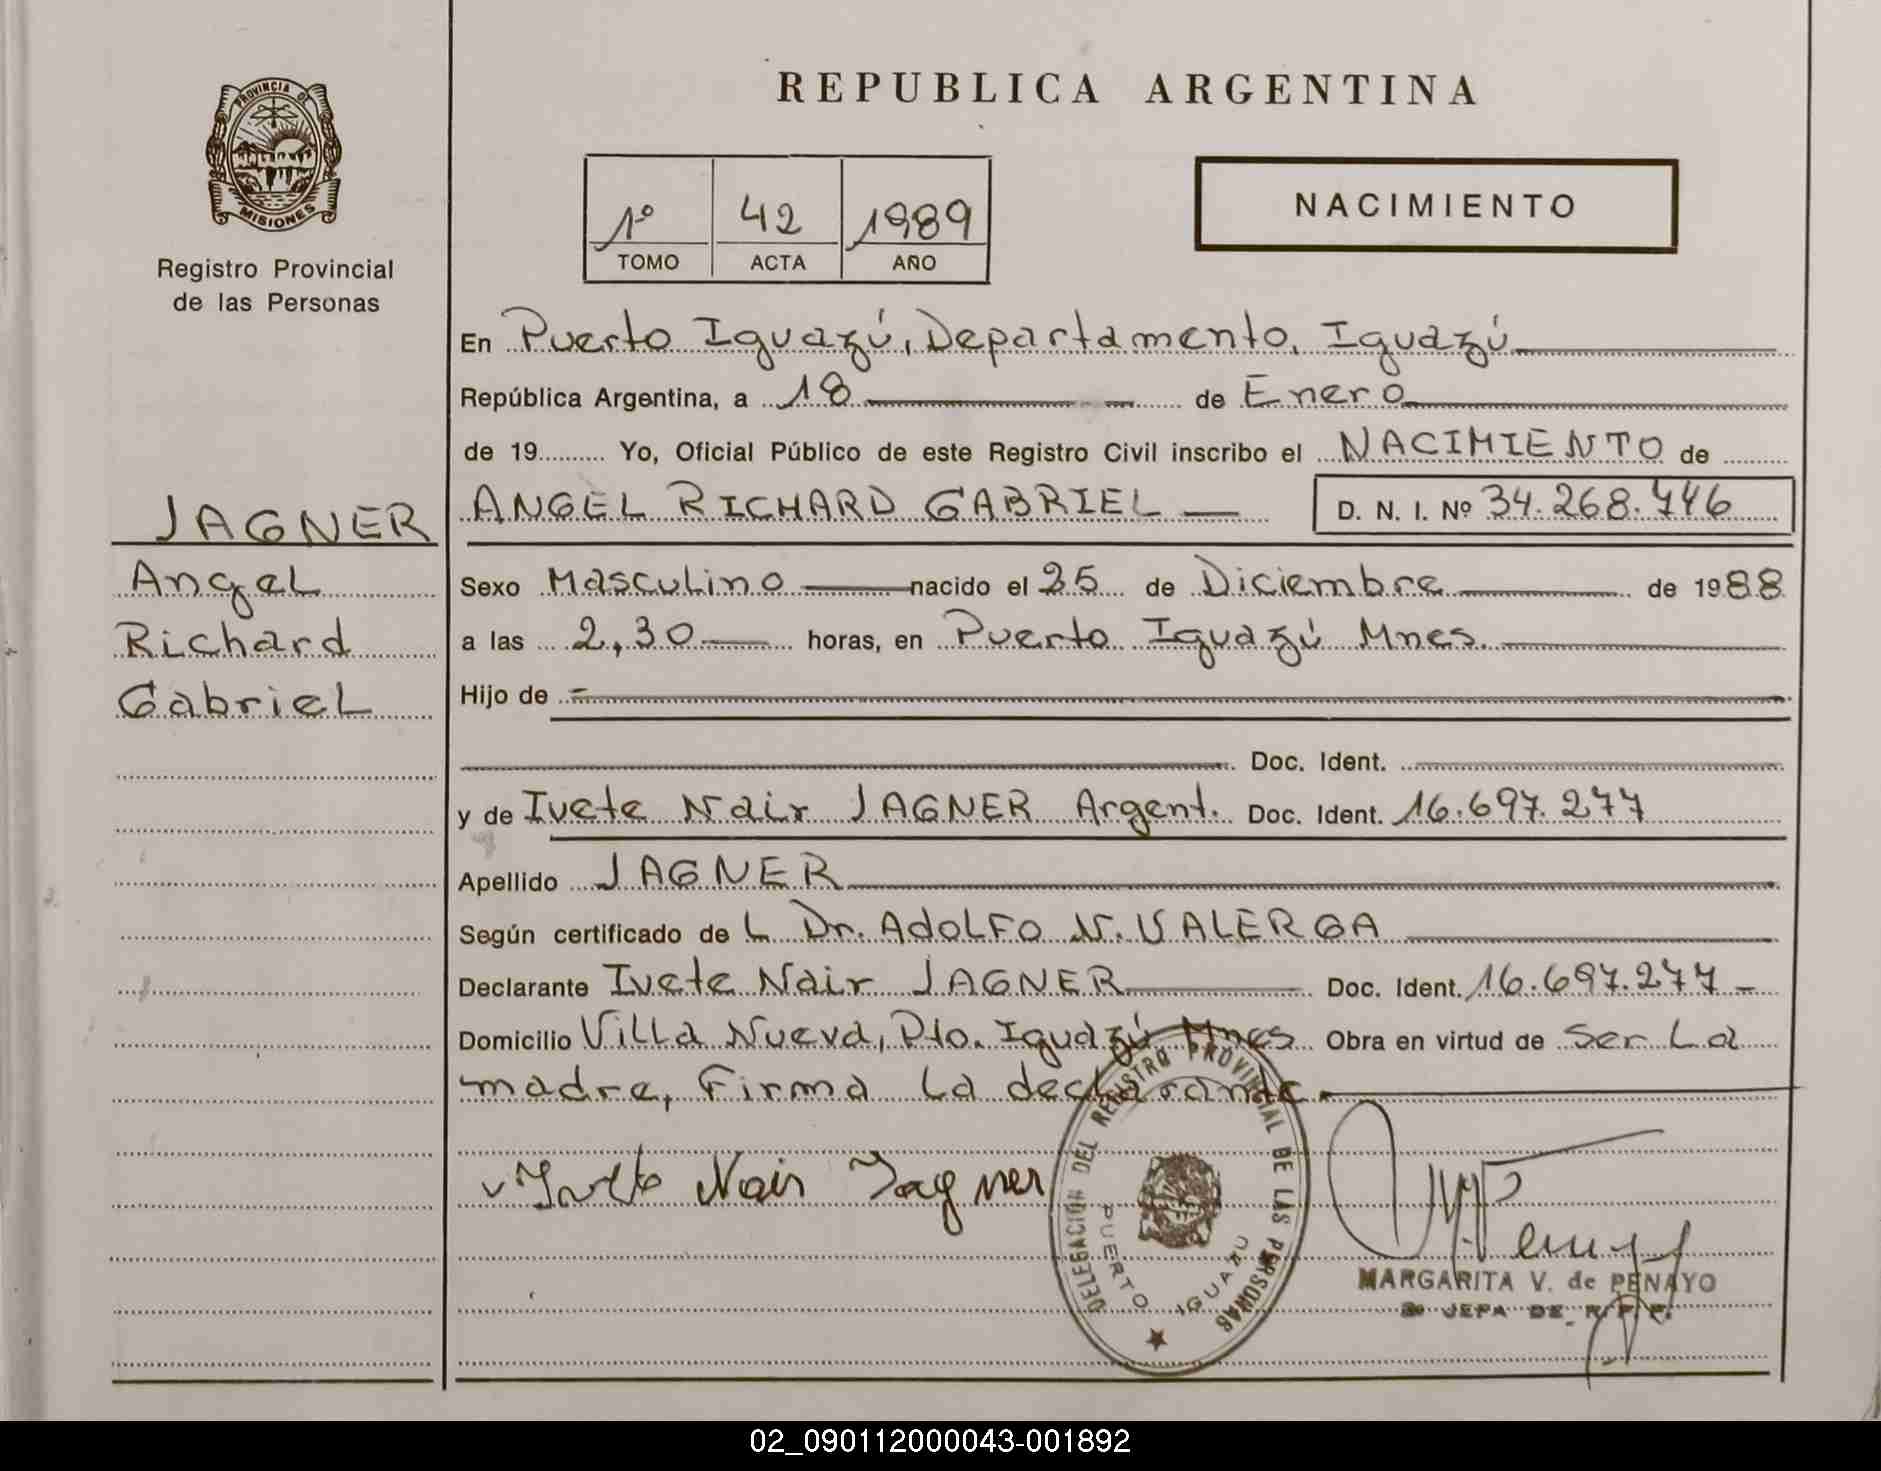 PROVINCIA DE
MISIONES
Registro Provincial
de las Personas
REPUBLICA ARGENTINA
1º 42 1989
TOMO ACTA AÑO
NACIMIENTO
En Puerto Iguazú, Departamento, Iguazú
República Argentina, a 18 de Enero
de 19 Yo, Oficial Público de este Registro Civil inscribo el NACIMIENTO de
JAGNER
Angel
Richard
Gabriel
ANGEL RICHARD GABRIEL D. N. I. Nº 34.268.746
Sexo Masculino nacido el 25 de Diciembre de 1988
a las 2,30 horas, en Puerto Iguazú Mnes.
Hijo de
Doc. Ident.
y de Ivete Nair JAGNER Argent. Doc. Ident. 16.697.277
Apellido JAGNER
Según certificado de L Dr. ADOLFO N. VALERGA
Declarante Ivete Nair JAGNER Doc. Ident. 16.697.277
Domicilio Villa Nueva, Pto. Iguazú Mnes Obra en virtud de ser La
madre, Firma La declarante.
Ivete Nair Jagner
DELEGACIÓN DEL REGISTRO PROVINCIAL DE LAS PERSONAS
PUERTO IGUAZU
MARGARITA V. de PENAYO
JEFA DE R.P.P.
02_090112000043-001892